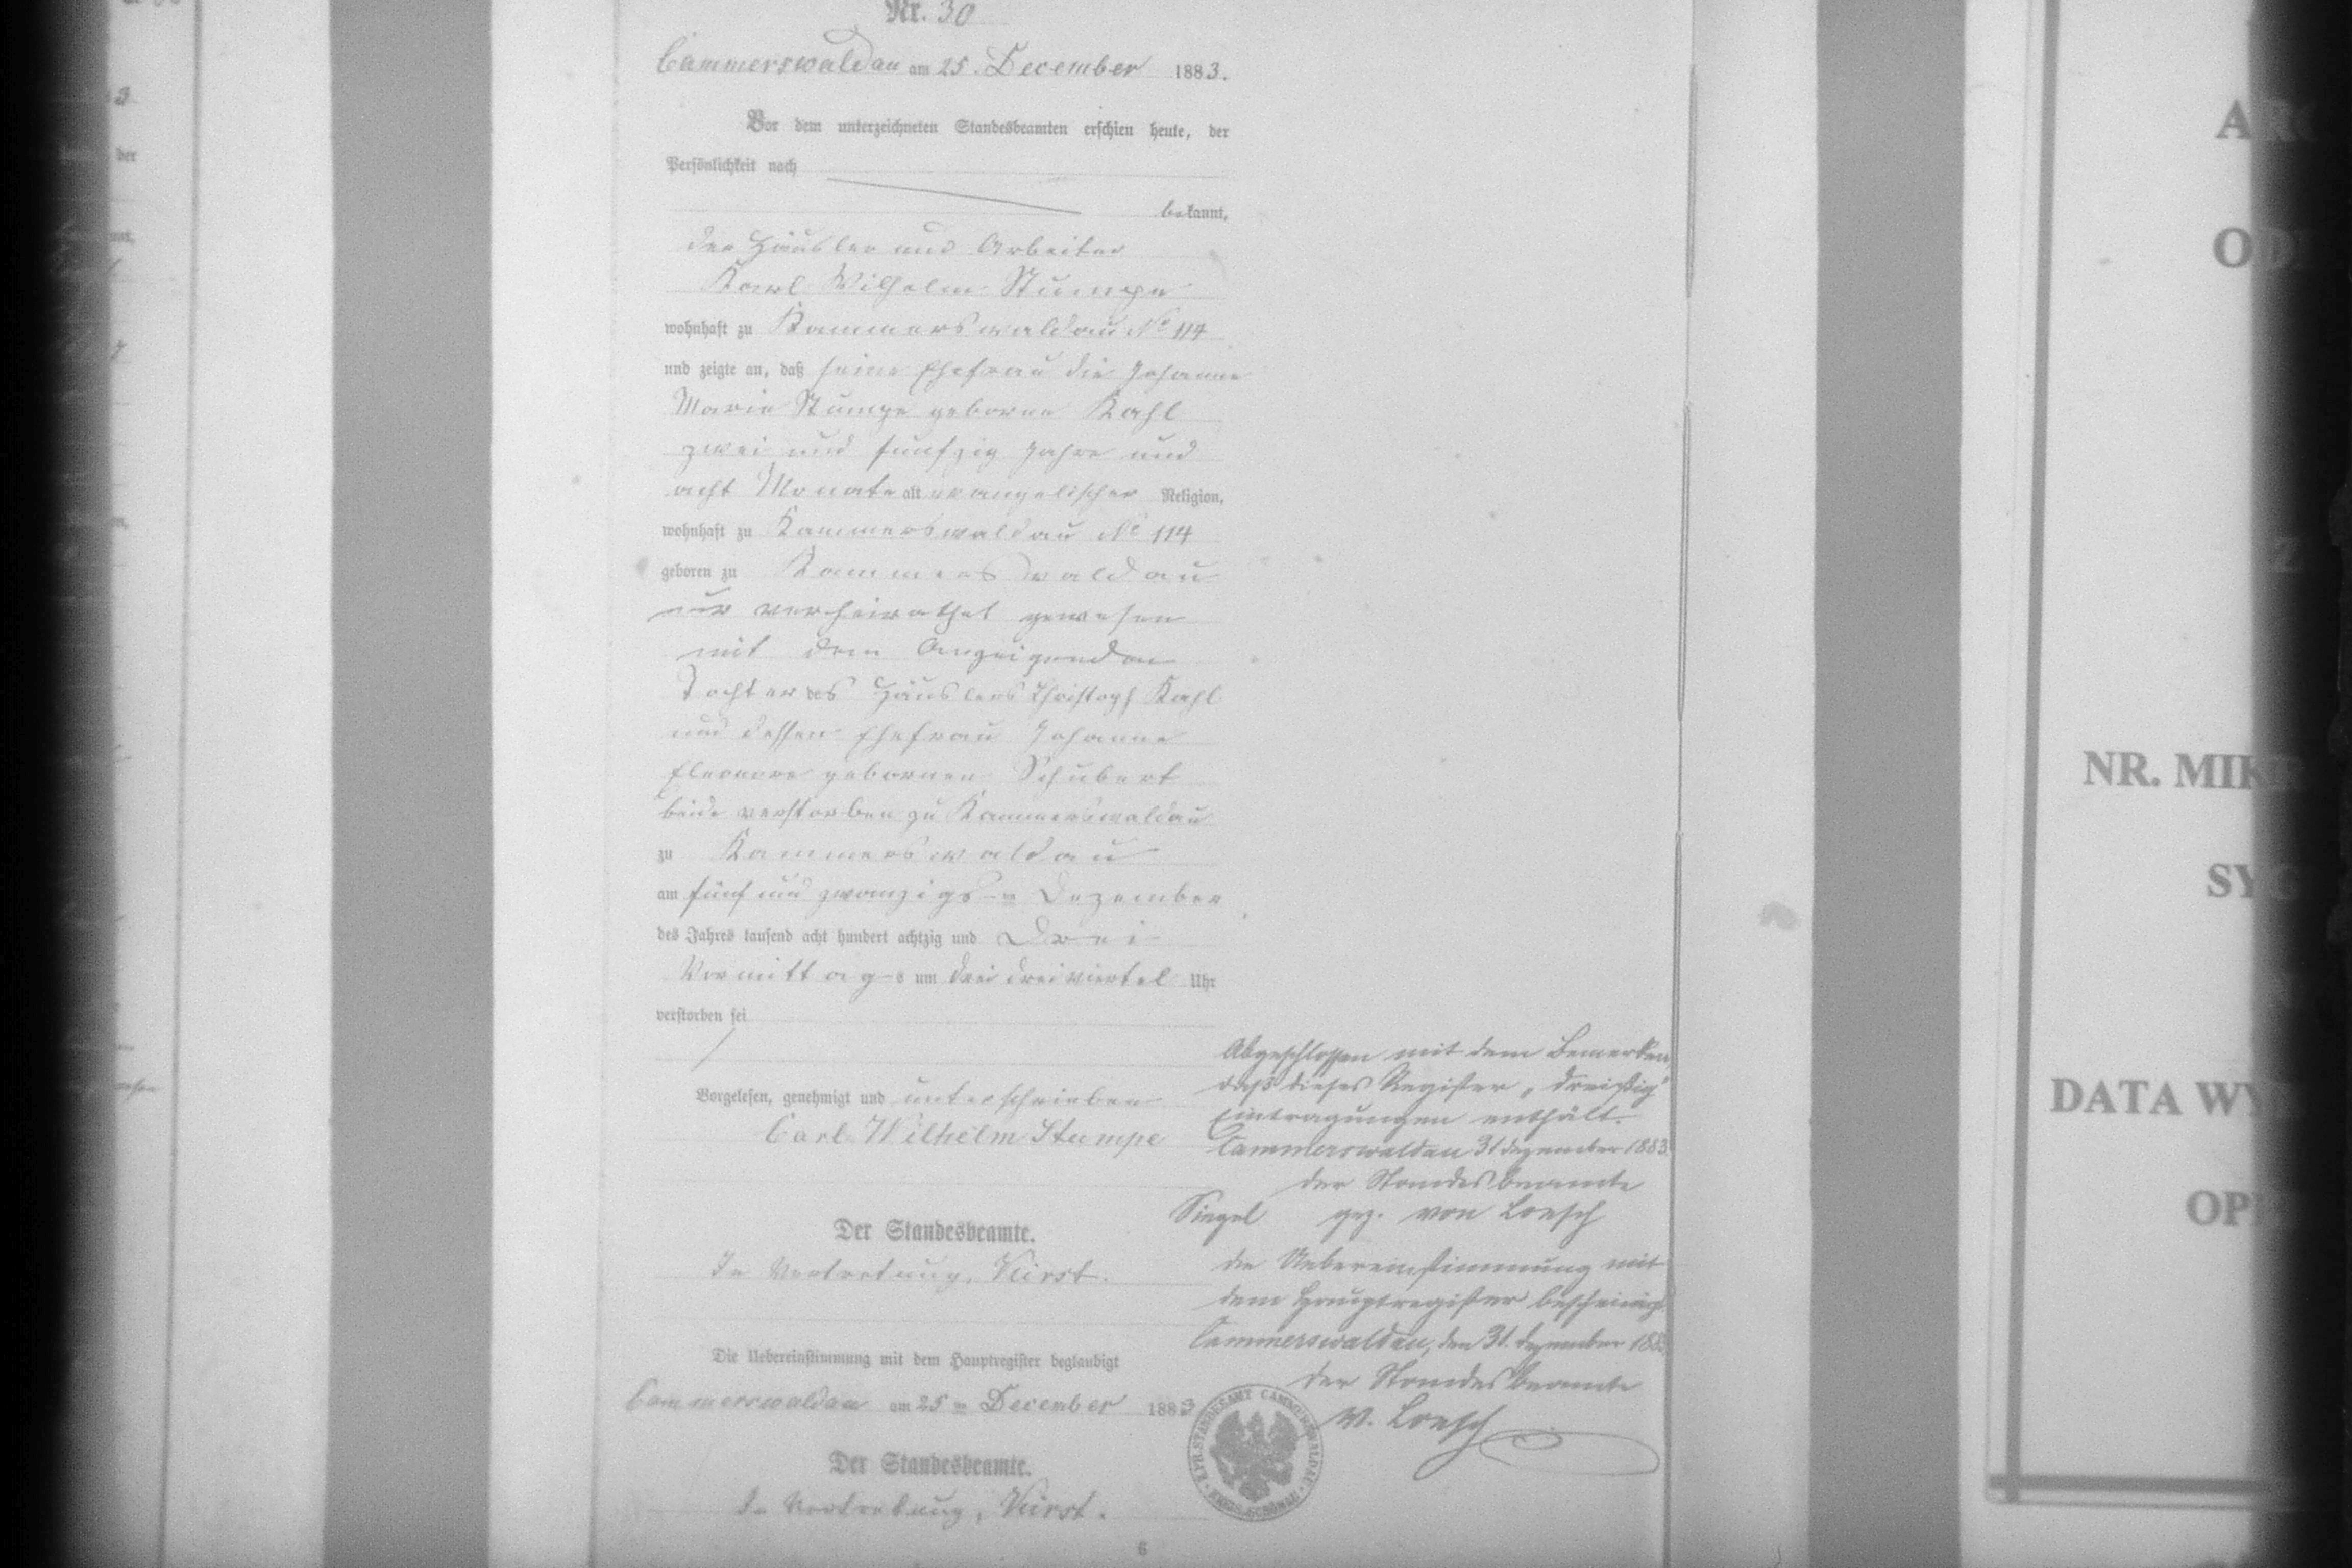 Nr. 30
Cammerswaldau am 25. December 1883.
Vor dem unterzeichneten Standesbeamten erschien heute, der
Persönlichkeit nach
bekannt,
der Häusler und Arbeiter
Karl Wilhelm Stumpe
wohnhaft zu Kammerswaldau No 114
und zeigte an, daß seine Ehefrau die Johanne
Marie Stumpe geborne Kahl
zwei und funfzig Jahre und
acht Monate alt evangelischer Religion,
wohnhaft zu Kammerswaldau No 114
geboren zu Kammerswaldau
verheirathet gewesen
mit dem Anzeigenden
Tochter des Häuslers Christoph Kahl
und dessen Ehefrau Johanne
Eleonore gebornen Schubert
beide verstorben zu Kammerswaldau
zu Kammerswaldau
am fünf und zwanzigs ten Dezember
des Jahres tausend acht hundert achtzig und Drei
Vormittag s um drei dreiviertel Uhr
verstorben sei
Vorgelesen, genehmigt und unterschrieben
Carl Wilhelm Stumpe
Der Standesbeamte.
In Vertretung, Kürst.
Die Uebereinstimmung mit dem Hauptregister beglaubigt
Cammerswaldau am 25 ten December 1883
Der Standesbeamte.
In Vertretung, Kürst.
6
Abgeschlossen mit dem Bemerken,
daß dieses Register „dreißig"
Eintragungen enthält.
Cammerswaldau 31 Dezember 1883.
Der Standesbeamte
Siegel gez. von Loesch
Die Uebereinstimmung mit
dem Hauptregister bescheinigt.
Cammerswaldau, den 31. Dezember 1883
Der Standesbeamte
v. Loesch
K. PR. STANDESAMT CAMMERSWALDAU
KREIS SCHÖNAU
NR. MIK
DATA WY